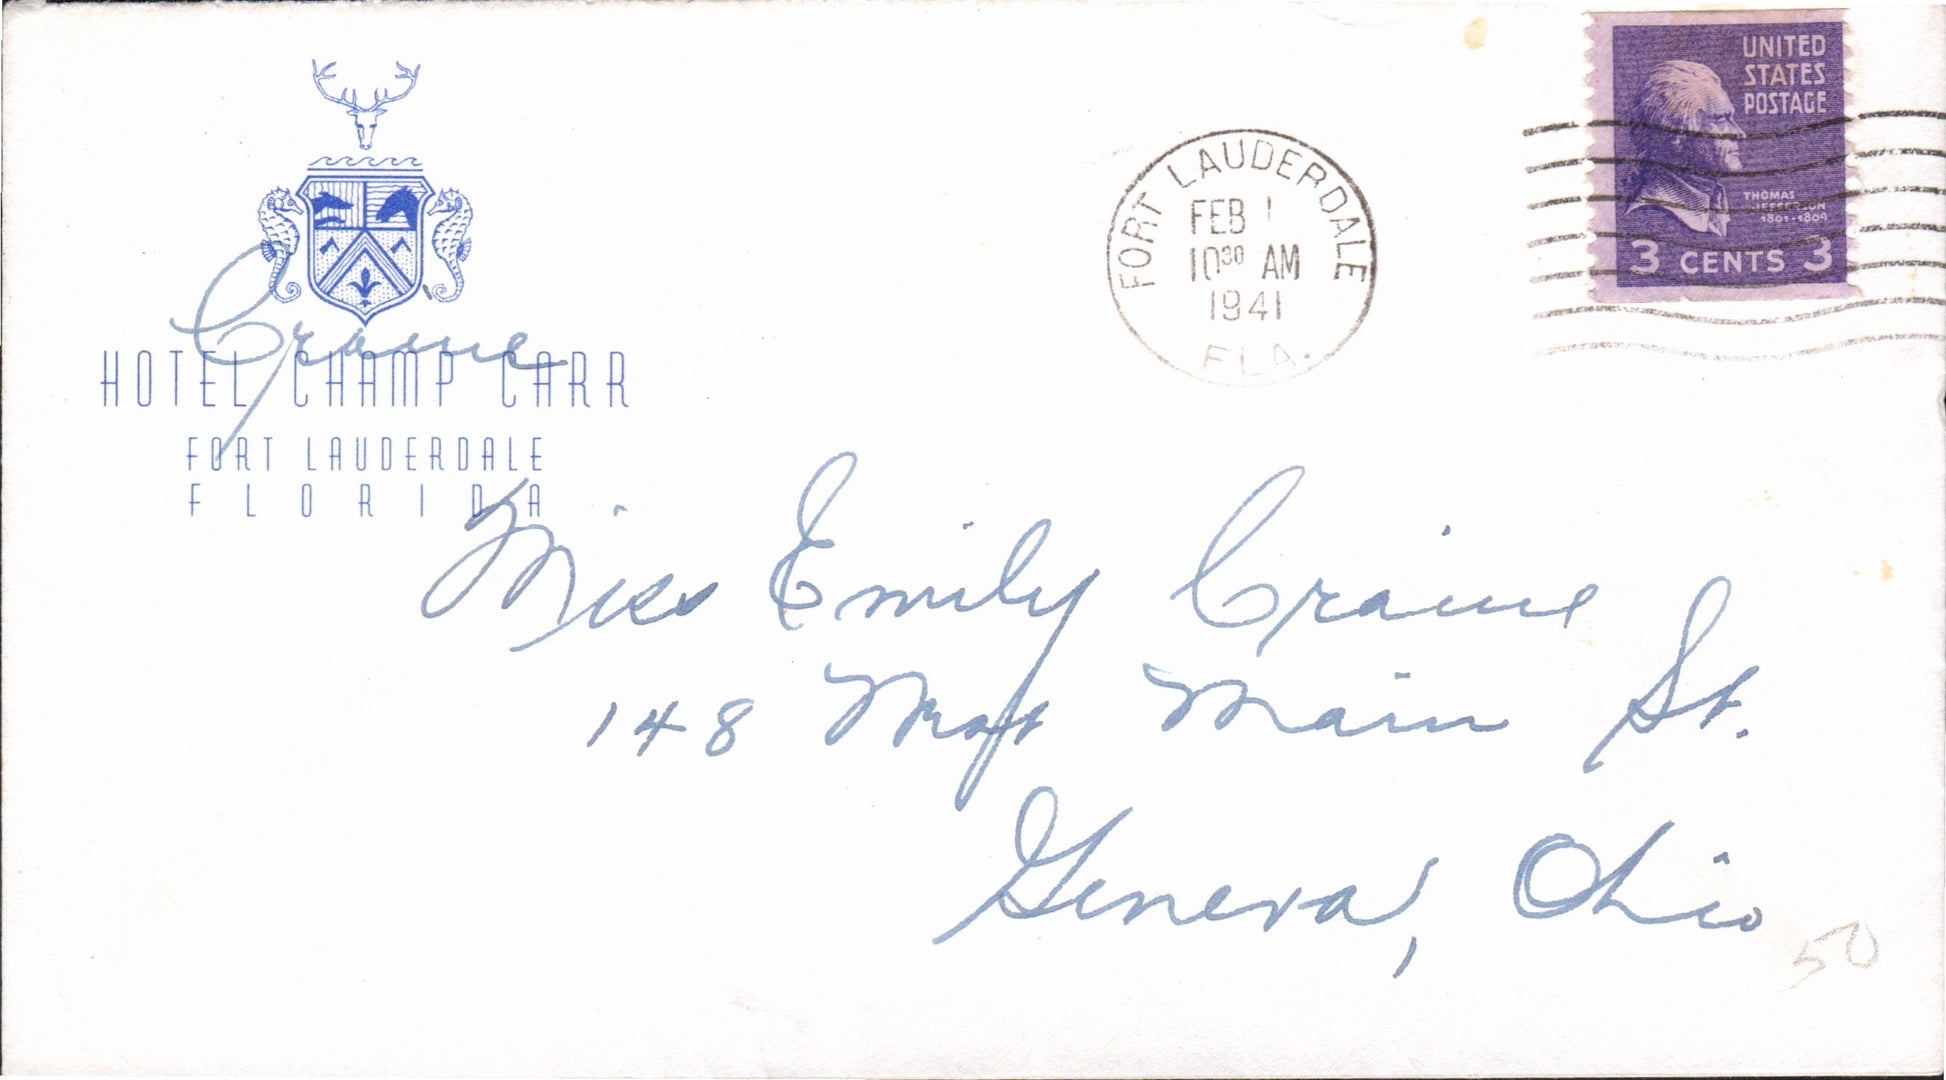 Craine
HOTEL CHAMP CARR
FORT LAUDERDALE
FLORIDA
FORT LAUDERDALE
FEB 1
10³⁰ AM
1941
FLA.
UNITED
STATES
POSTAGE
THOMAS
JEFFERSON
1801-1809
3 CENTS 3
Miss Emily Craine
148 Main St.
Geneva, Ohio
50